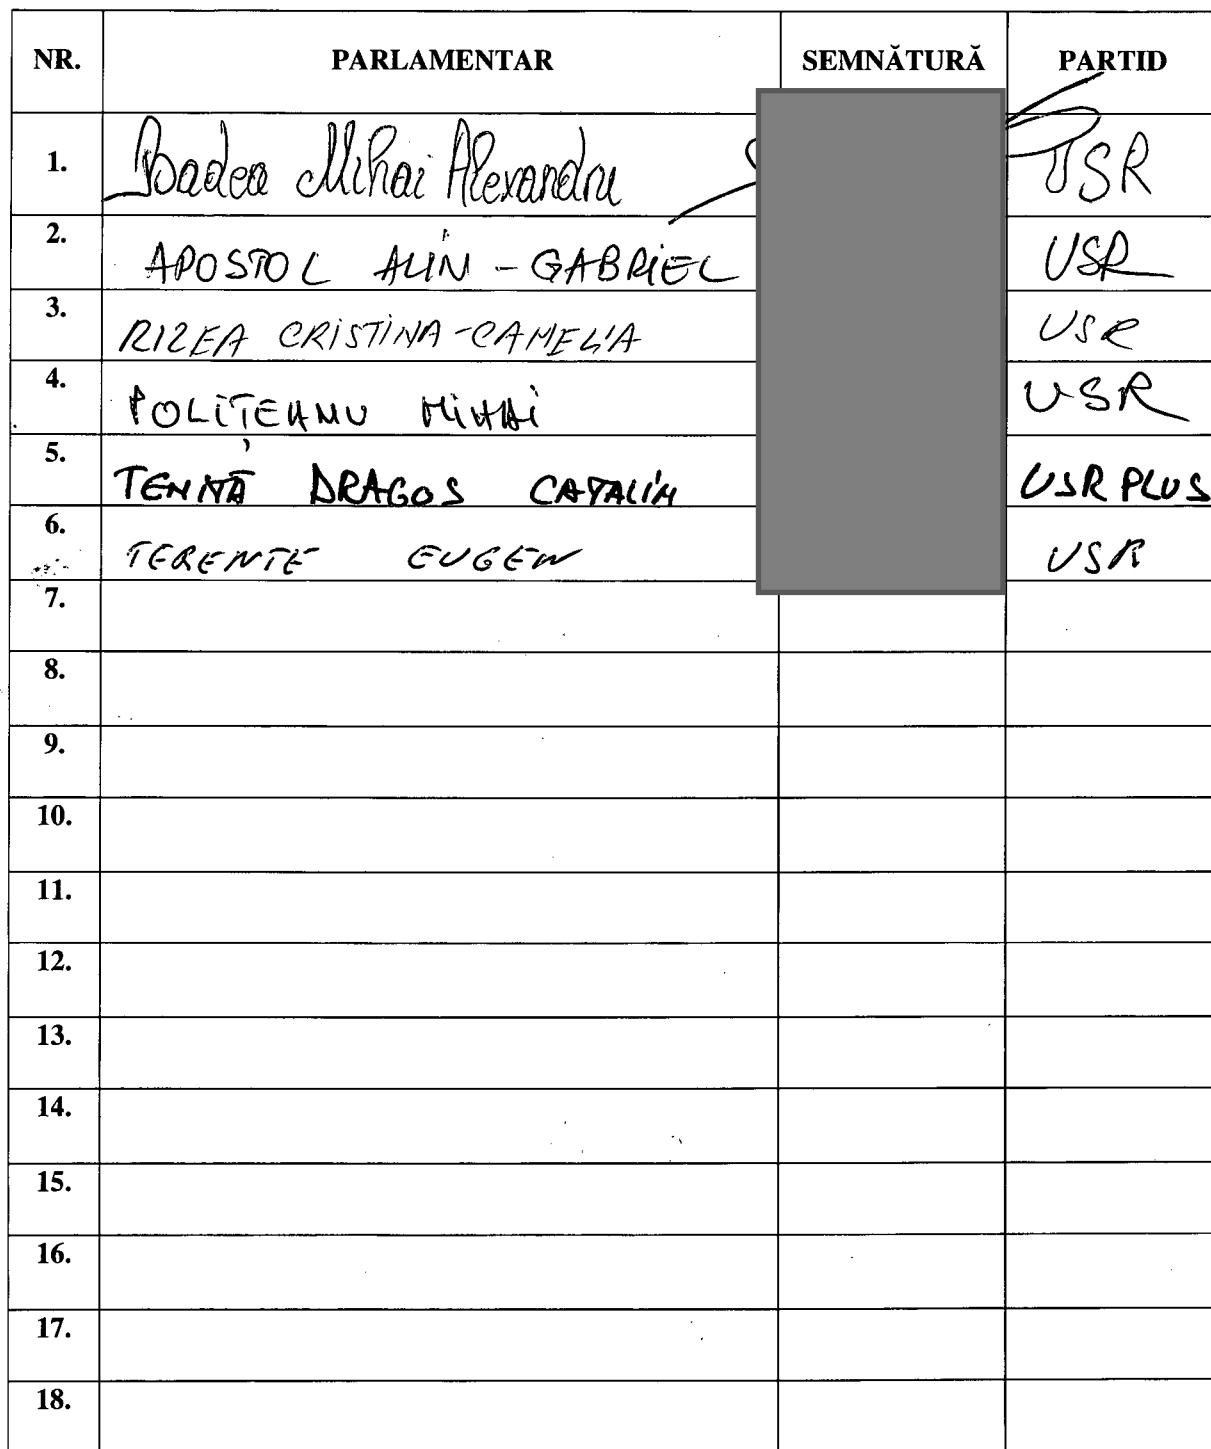 NR. PARLAMENTAR SEMNĂTURĂ PARTID
1. Badea Mihai Alexandru USR
2. APOSTOL ALIN - GABRIEL USR
3. RIZEA CRISTINA-CAMELIA USR
4. POLIȚEANU MIHAI USR
5. TENITĂ DRAGOS CATALIN USR PLUS
6. TERENTE EUGEN USR
7.
8.
9.
10.
11.
12.
13.
14.
15.
16.
17.
18.